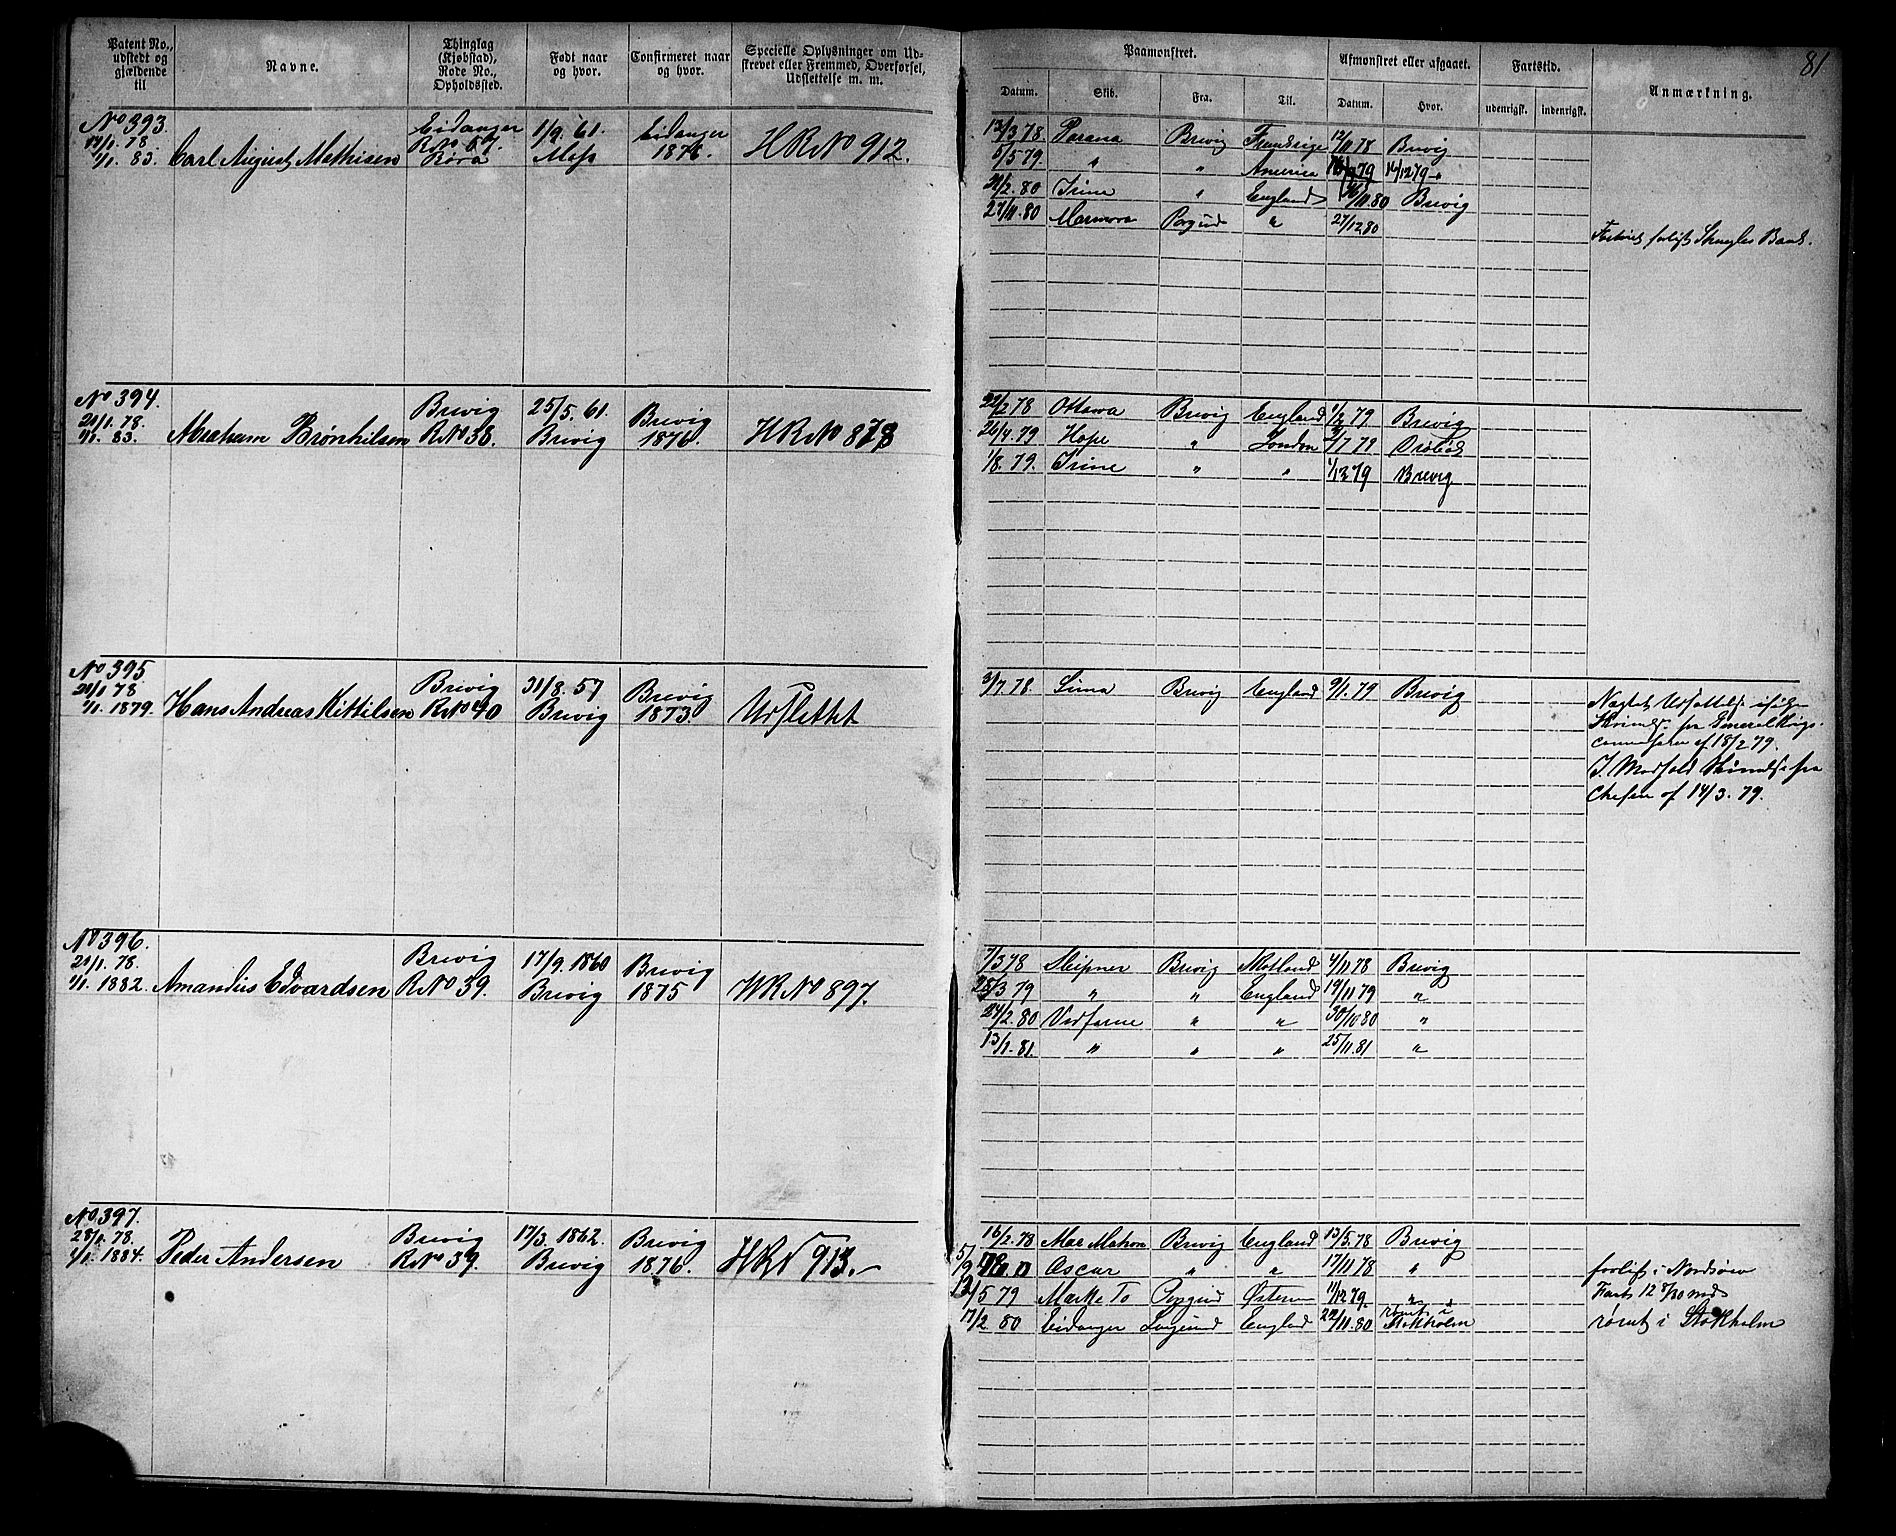 81
Patent No., udstedt og gjældende til
Navne.
Thinglag (Kjøbstad), Rode No., Opholdssted.
Født naar og hvor.
Confirmeret naar og hvor.
Specielle Oplysninger om Udskrevet eller Fremmed, Overførsel, Udslettelse m. m.
Paamønstret.
Afmønstret eller afgaaet.
Fartstid.
Anmærkning.
Datum. Skib. Fra. Til. Datum. Hvor. udenrigsk. indenrigsk.
No 393.
1/1. 83. Carl August Mathisen
Eidanger
R No 57.
1/9. 61.
Moss
Eidanger
1876.
HR No 912.
13/3 78 Parana Brevig Frankrige 12/11 78 Brevig
5/5 79. " " America 14/12 79 "
2. 80 Irine " England 16/11 80 Brevig
27/11. 80 Marmora " 27/12 80
No 394.
21/1. 78.
1/1. 83. Abraham Brønhilsen
Brevig
R No 38.
25/5. 61.
Brevig
Brevig
1876.
HR No 878
22/2 78 Ottawa Brevig England 1/2 79 Brevig
26/4. 79 Hope " London /7 79 Drøbak
1/8. 79. Irine " " 1/12 79 Brevig
No 395.
21/1 78
1/1. 1879. Hans Andreas Kittilsen
Brevig
R No 40
31/8. 57
Brevig
Brevig
1873.
Udslettet
3/7. 78. Sima Brevig England 9/1. 79 Brevig
Nægtet Udsættelse ifølge
Skrivelse fra Generalkrigs-
af 18/2 79.
I. Modhold Skrivelse fra
Chefen af 14/3. 79.
No 396.
21/1. 78.
1/1. 1882. Amandus Edvardsen
Brevig
R No 39.
17/9. 1860
Brevig
Brevig
1875
HR No 897.
7/3 78 Sleipner Brevig Skotland 4/11 78 Brevig
25/3 79 " " England 19/11 79 "
24/2. 80 Vedfarne " " 30/10 80 "
13/1. 81. " " " 25/11. 81 "
No 397.
28/1. 78.
1/1. 1884. Peder Andersen
Brevig
R No 39.
17/3. 1862.
Brevig
Brevig
1876.
HR N 913.
16/2. 78 Mac Mahon Brevig England 13/5. 78 Brevig
5/9 78 Oscar " " 17/11 78 "
12/5 79 Marke To Østersøen 11/12 79 "
17/2. 80 Eidanger Langesund England 22/11. 80 rømt i Stokholm
forlist i Nordsøen
rømt i Stokholm